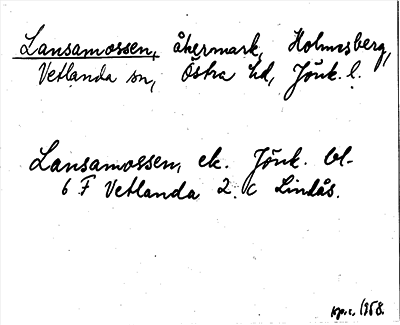 Lansamossen, åkermark, Holmsberg,
Vetlanda sn, Östra hd, Jönk. l.
Lansamossen, ek. Jönk. bl.
6 F Vetlanda 2. c Lindås.
1958.